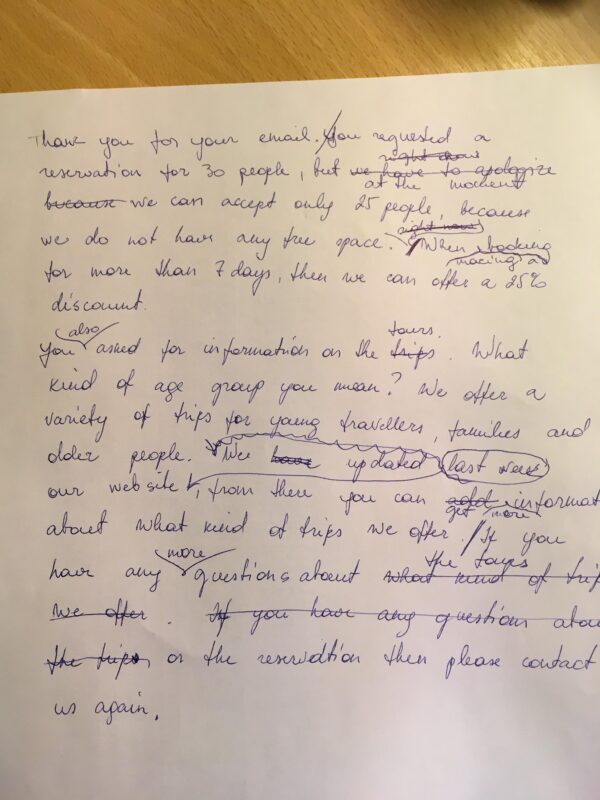 Thank you for your email. You requested a
right now
reservation for 30 people, but we have to apologize
at the moment
because we can accept only 25 people, because
right now
we do not have any free space. When booking
macing a
for more than 7 days, then we can offer a 25%
discount.
also tours.
you asked for information on the trips. What
kind of age group you mean? We offer a
variety of trips for young travellers, families and
older people. We have updated last week
our website, from there you can add informat
get more
about what kind of trips we offer. If you
more the tours
have any questions about what kind of trip
we offer. If you have any questions abou
the trips or the reservation then please contact
us again.